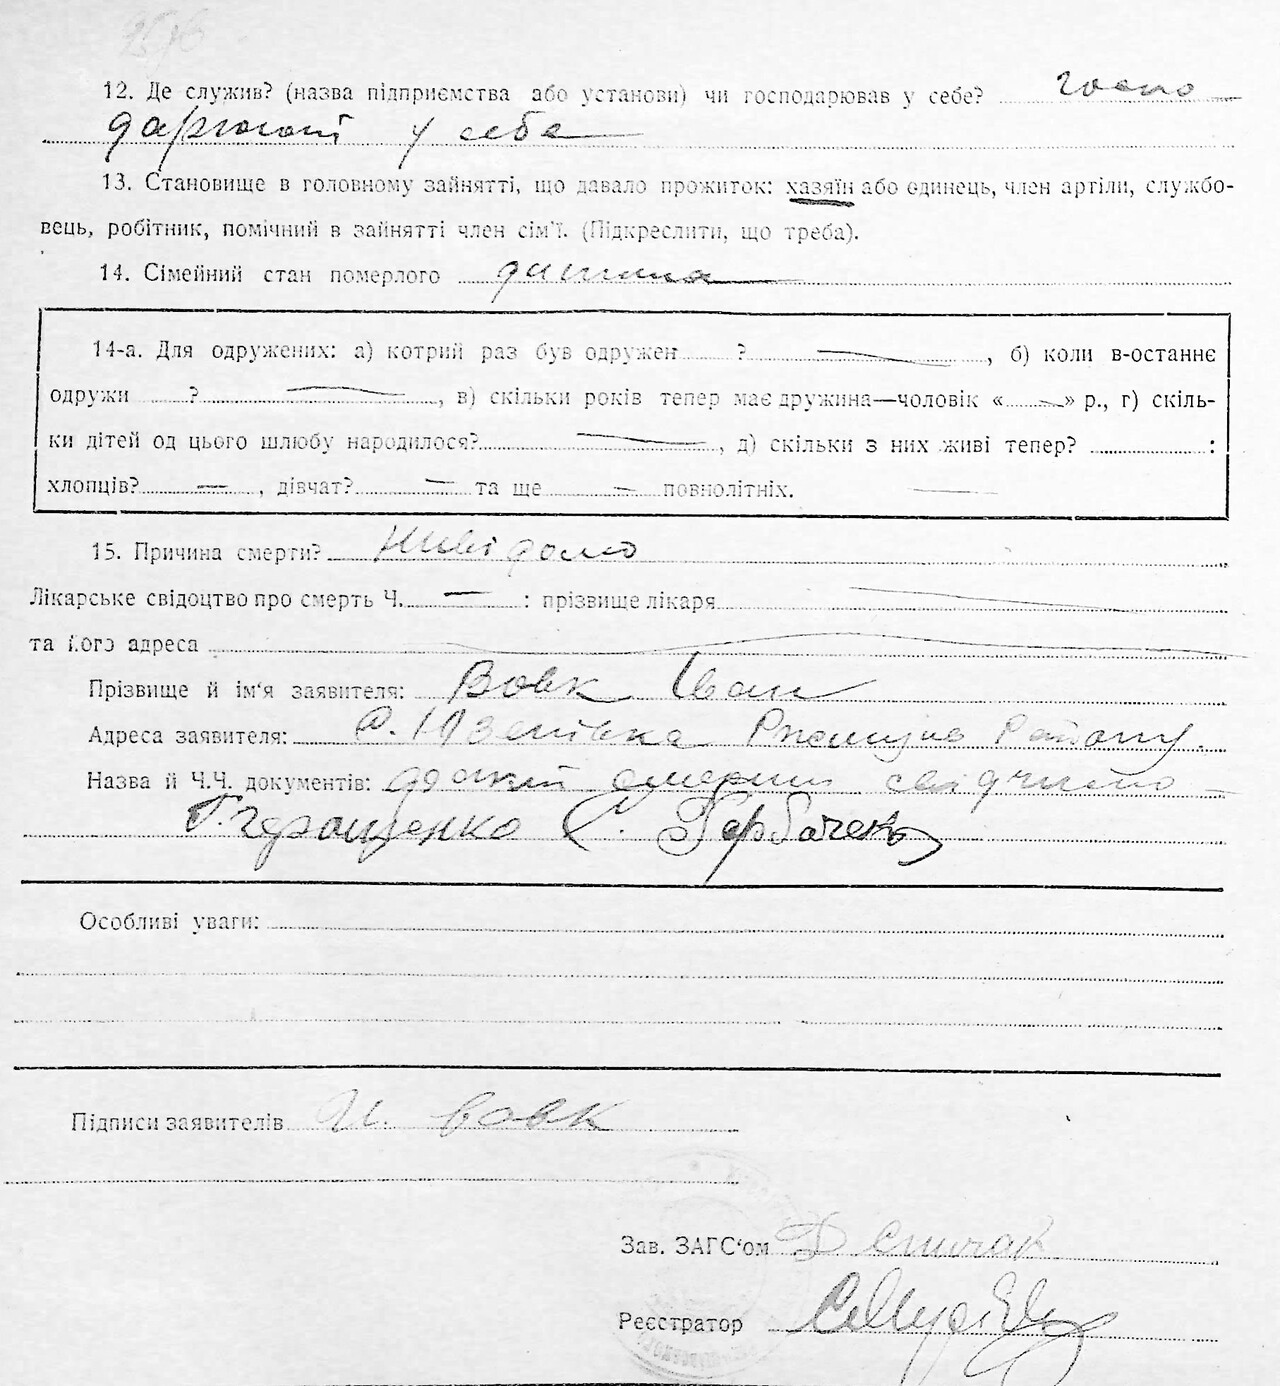 12. Де служив? (назва підприємства або установи) чи господарював у себе? госпо
дарював у себе
13. Становище в головному зайнятті, що давало прожиток: хазяїн або одинець, член артіли, службо-
вець, робітник, помічний в зайнятті член сім'ї. (Підкреслити, що треба).
14. Сімейний стан померлого дитина
14-а. Для одружених: а) котрий раз був одружен ? , б) коли в-останнє
одружи ? , в) скільки років тепер має дружина—чоловік « » р., г) скіль-
ки дітей од цього шлюбу народилося? , д) скільки з них живі тепер? :
хлопців? — , дівчат? — та ще — повнолітніх.
15. Причина смерти? Невідомо
Лікарське свідоцтво про смерть Ч. — : прізвище лікаря
та його адреса
Прізвище й ім'я заявителя: Вовк Іван
Адреса заявителя: Району
Назва й Ч.Ч. документів: смерти
Г. Геращенко
Особливі уваги:
Підписи заявителів И. Вовк
Зав. ЗАГС'ом
Реєстратор